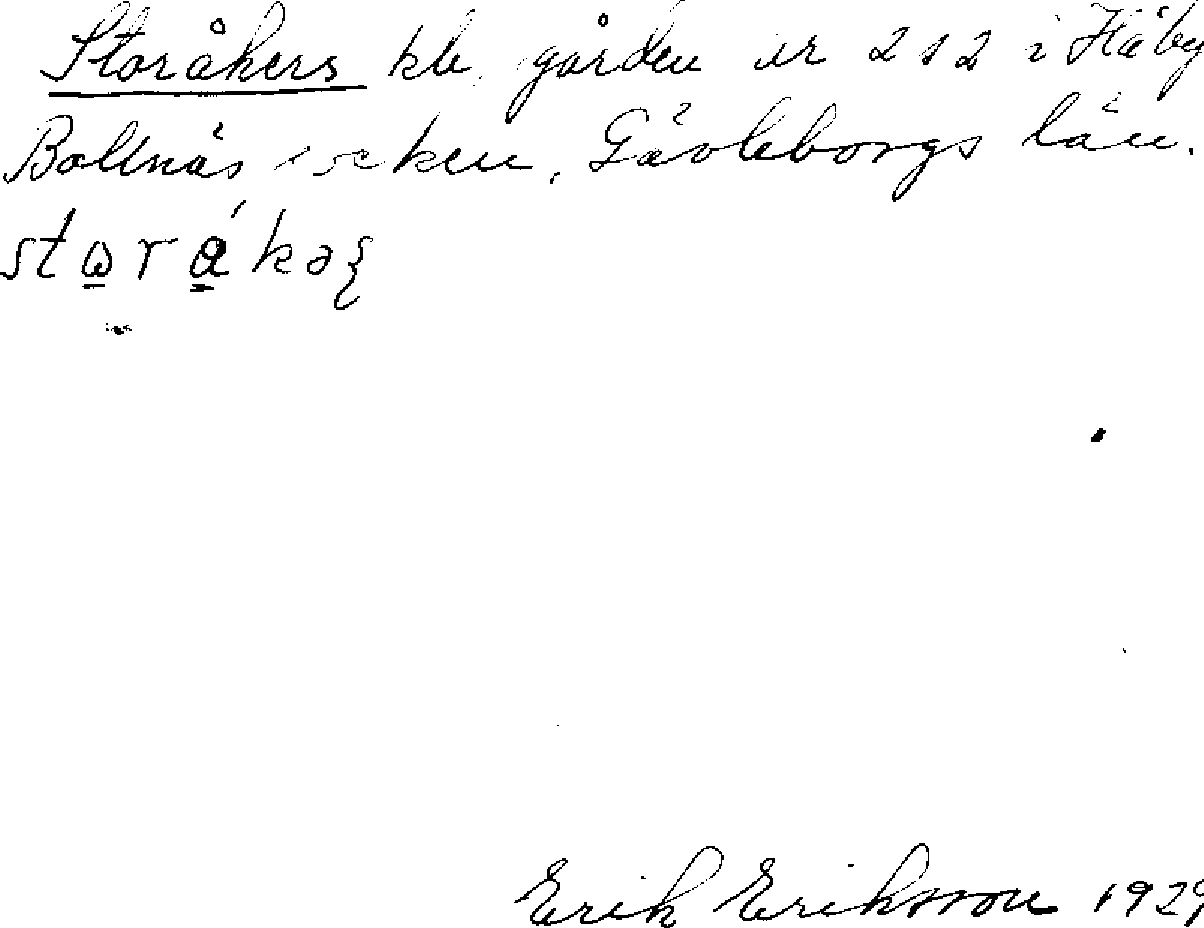 Storåkers kallas gården nr 212 i Häby
Bollnäs socken, Gävleborgs län.
Erik Eriksson 1929